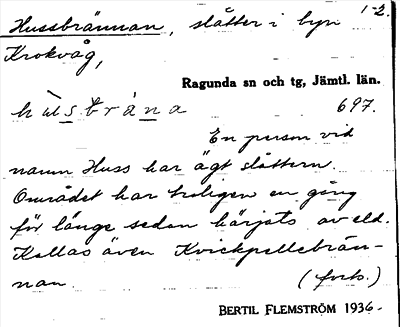 Hussbrännan, slåtter i byn 1-2.
Krokvåg,
Ragunda sn och tg, Jämtl. län.
697.
En person vid
namn Huss har ägt slåttern.
Området har troligen en gång
för länge sedan härjats av eld.
Kallas även Kvickpellebrän-
nan. (forts.)
BERTIL FLEMSTRÖM 1936.